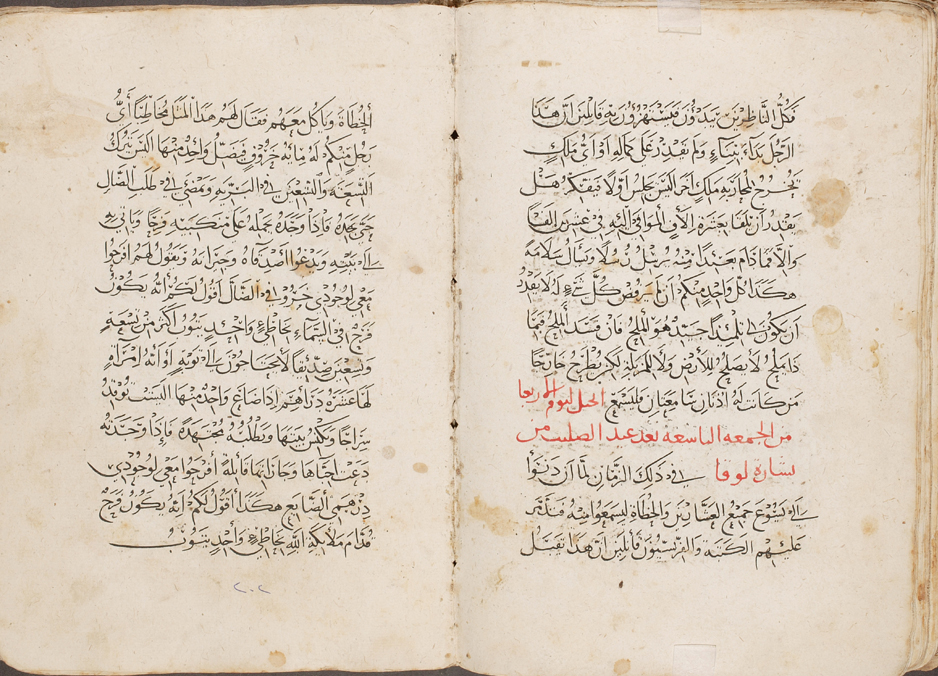 فكل الناظرين يبدون فيستهزؤن به قائلين ان هذا
الرجل بداء بنياء ولم يقدر على كماله او اي ملك
يخرج لمحاربة ملك اخر اليس يجلس اولا فيفتكر هل
يقدر ان يلقا بعشرة الاف الموافي اليه في عشرين الفا
والا فما دام بعيدا منه يرسل رسلا ويسال سلامه
هكذا كل واحد منكم ان لم يرفض كل شيء له لا يقدر
ان يكون لي تلميذا جيد هو الملح فان فسد الملح فبما
ذا يملح لا يصلح للارض ولا للمزبلة لكن يطرح خارجا
من كانت له اذنان سامعتان فليسمع الاربعا
من الجمعه التاسعه بعد عيد الصليب من
بشارة لوقا في ذلك الزمان لما ان دنوا
الى يسوع جميع العشارين والخطاة ليسمعوا منه فتذمر
عليهم الكتبة والفريسيون قائلين ان هذا يقبل
الخطاة وياكل معهم فقال لهم هذا المثل مخاطبا اي
رجل منكم له مايه خروف فضل واحد منها اليس يترك
التسعة والتسعين في البرية ويمضي في طلب الضال
حتى يجده فاذا وجده حمله على منكبيه فرحا وياتي
الى بيته ويدعوا اصدقاه وجيرانه ويقول لهم افرحوا
معي لوجودي خروفي الضال اقول لكم انه يكون
فرح في السماء بخاطئ واحد يتوب اكثر من تسعة
وتسعين صديقا لا يحتاجون الى توبة او اية امراه
لها عشرة دراهم اذا ضاع واحد منها اليست توقد
سراجا وتكنس بيتها وتطلبه مجتهدة فاذا وجدته
دعت احباها وجاراتها قائلة افرحوا معي لوجودي
درهمي الضايع هكذا اقول لكم انه يكون فرح
قدام ملايكة الله بخاطئ واحد يتوب
٢٠٢